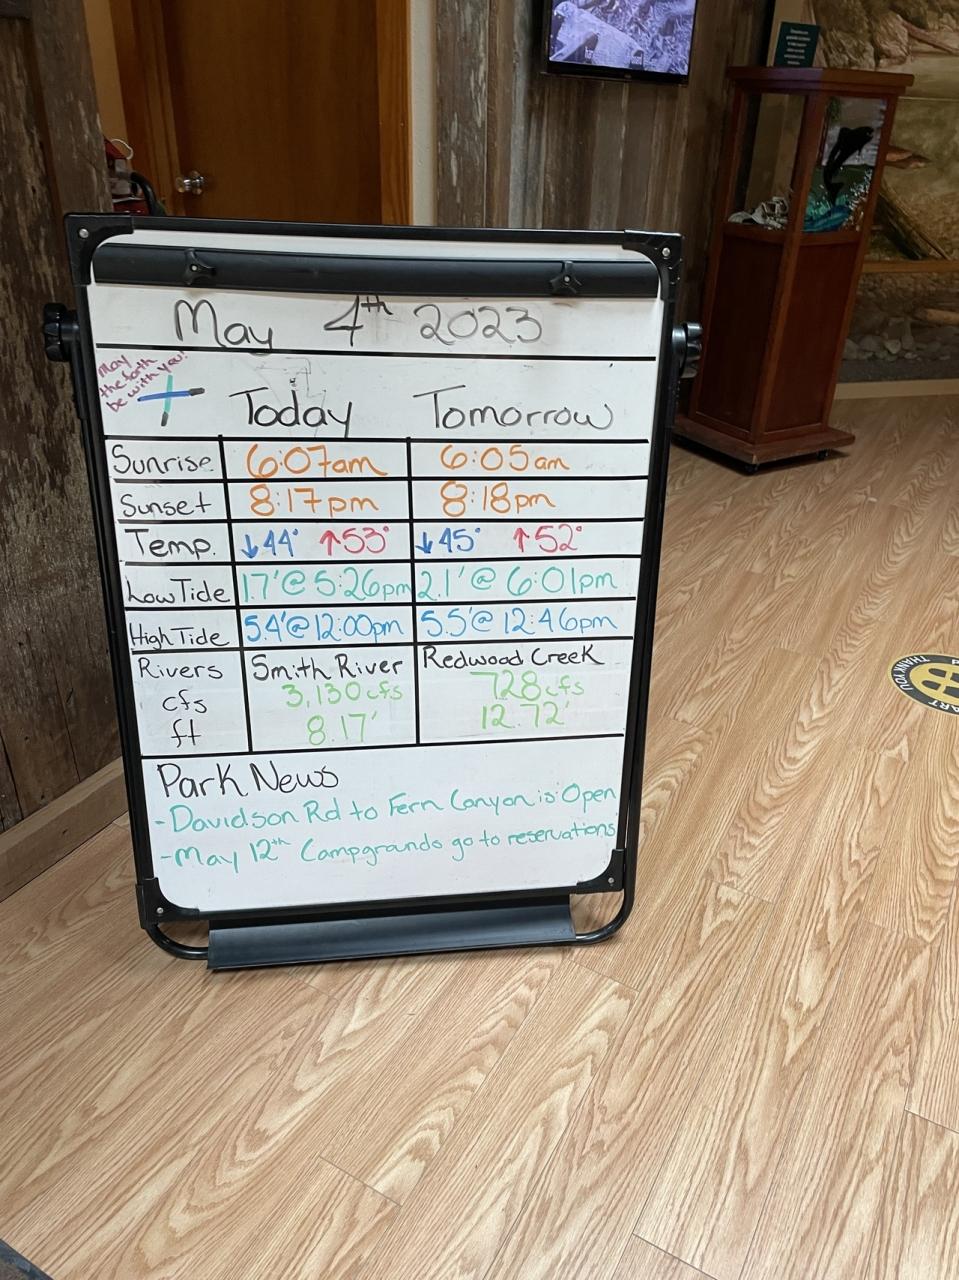 May 4th 2023
May
the forth
be with you!
Today Tomorrow
Sunrise 6:07am 6:05am
Sunset 8:17pm 8:18pm
Temp. ↓44° ↑53° ↓45° ↑52°
Low Tide 1.7'@ 5:26pm 2.1'@ 6:01pm
High Tide 5.4'@12:00pm 5.5'@ 12:46pm
Rivers Smith River Redwood Creek
cfs 3,130cfs 728cfs
ft 8.17' 12.72'
Park News
-Davidson Rd to Fern Canyon is Open
-May 12th Campgrands go to reservations
THANK YOU